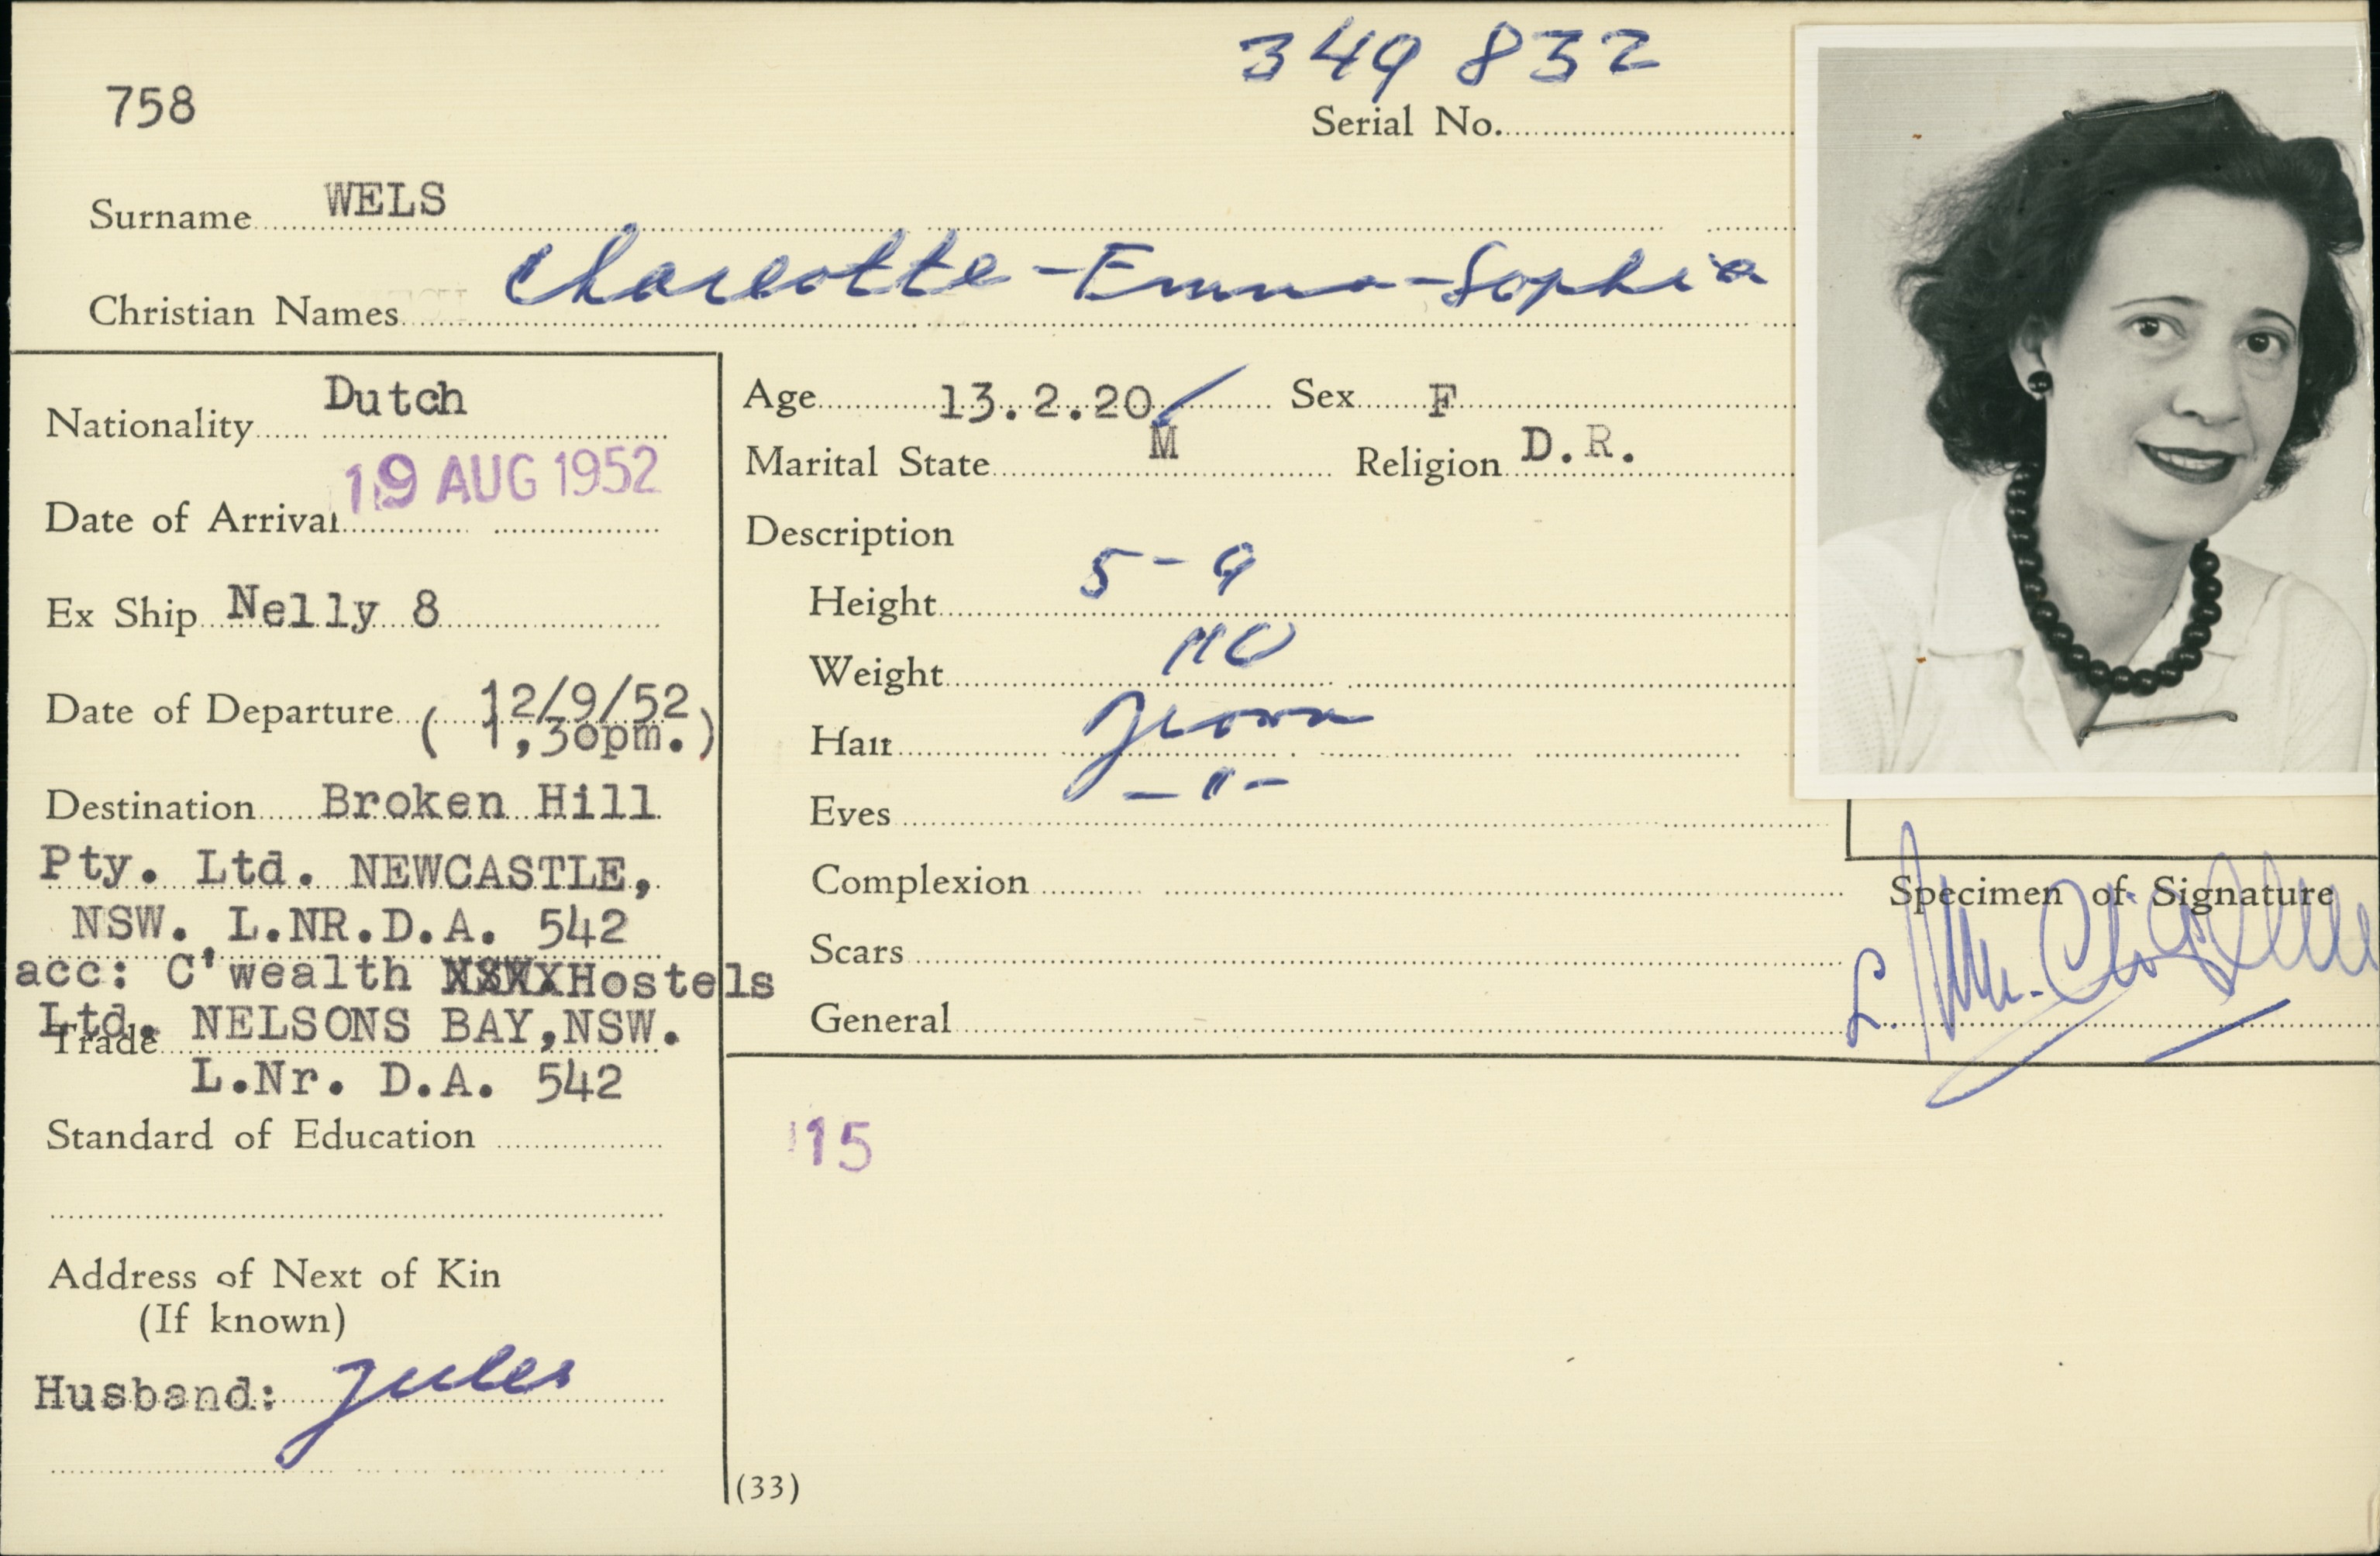 349 832
758
Serial No.
Surname WELS
Christian Names Charlotte-Emma-Sophia
Nationality Dutch
Date of Arrival 19 AUG 1952
Ex Ship Nelly 8
Date of Departure 12/9/52
( 1,30pm.)
Destination Broken Hill
Pty. Ltd. NEWCASTLE,
NSW. L.NR.D.A. 542
acc: C'wealth Hostels
Ltd. NELSONS BAY,NSW.
Trade
L.Nr. D.A. 542
Standard of Education
Address of Next of Kin
(If known)
Husband: Jules
Age 13.2.20 Sex F
Marital State M Religion D.R.
Description
Height 5-9
Weight
Hair
Eyes -"-
Complexion
Scars
General
Specimen of Signature
15
(33)